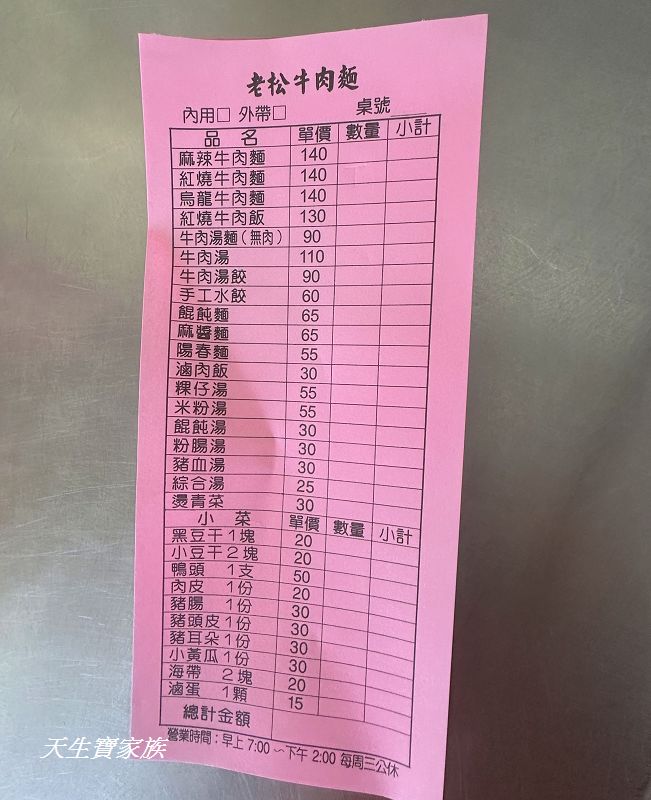 老松牛肉麵
內用□ 外帶□ 桌號
品名 單價 數量 小計
麻辣牛肉麵 140
紅燒牛肉麵 140
烏龍牛肉麵 140
紅燒牛肉飯 130
牛肉湯麵（無肉） 90
牛肉湯 110
牛肉湯餃 90
手工水餃 60
餛飩麵 65
麻醬麵 65
陽春麵 55
滷肉飯 30
粿仔湯 55
米粉湯 55
餛飩湯 30
粉腸湯 30
豬血湯 30
綜合湯 25
燙青菜 30
小菜 單價 數量 小計
黑豆干1塊 20
小豆干2塊 20
鴨頭 1支 50
肉皮 1份 20
豬腸 1份 30
豬頭皮1份 30
豬耳朵1份 30
小黃瓜1份 30
海帶 2塊 20
滷蛋 1顆 15
總計金額
營業時間：早上 7:00 ~下午 2:00 每周三公休
天生寶家族